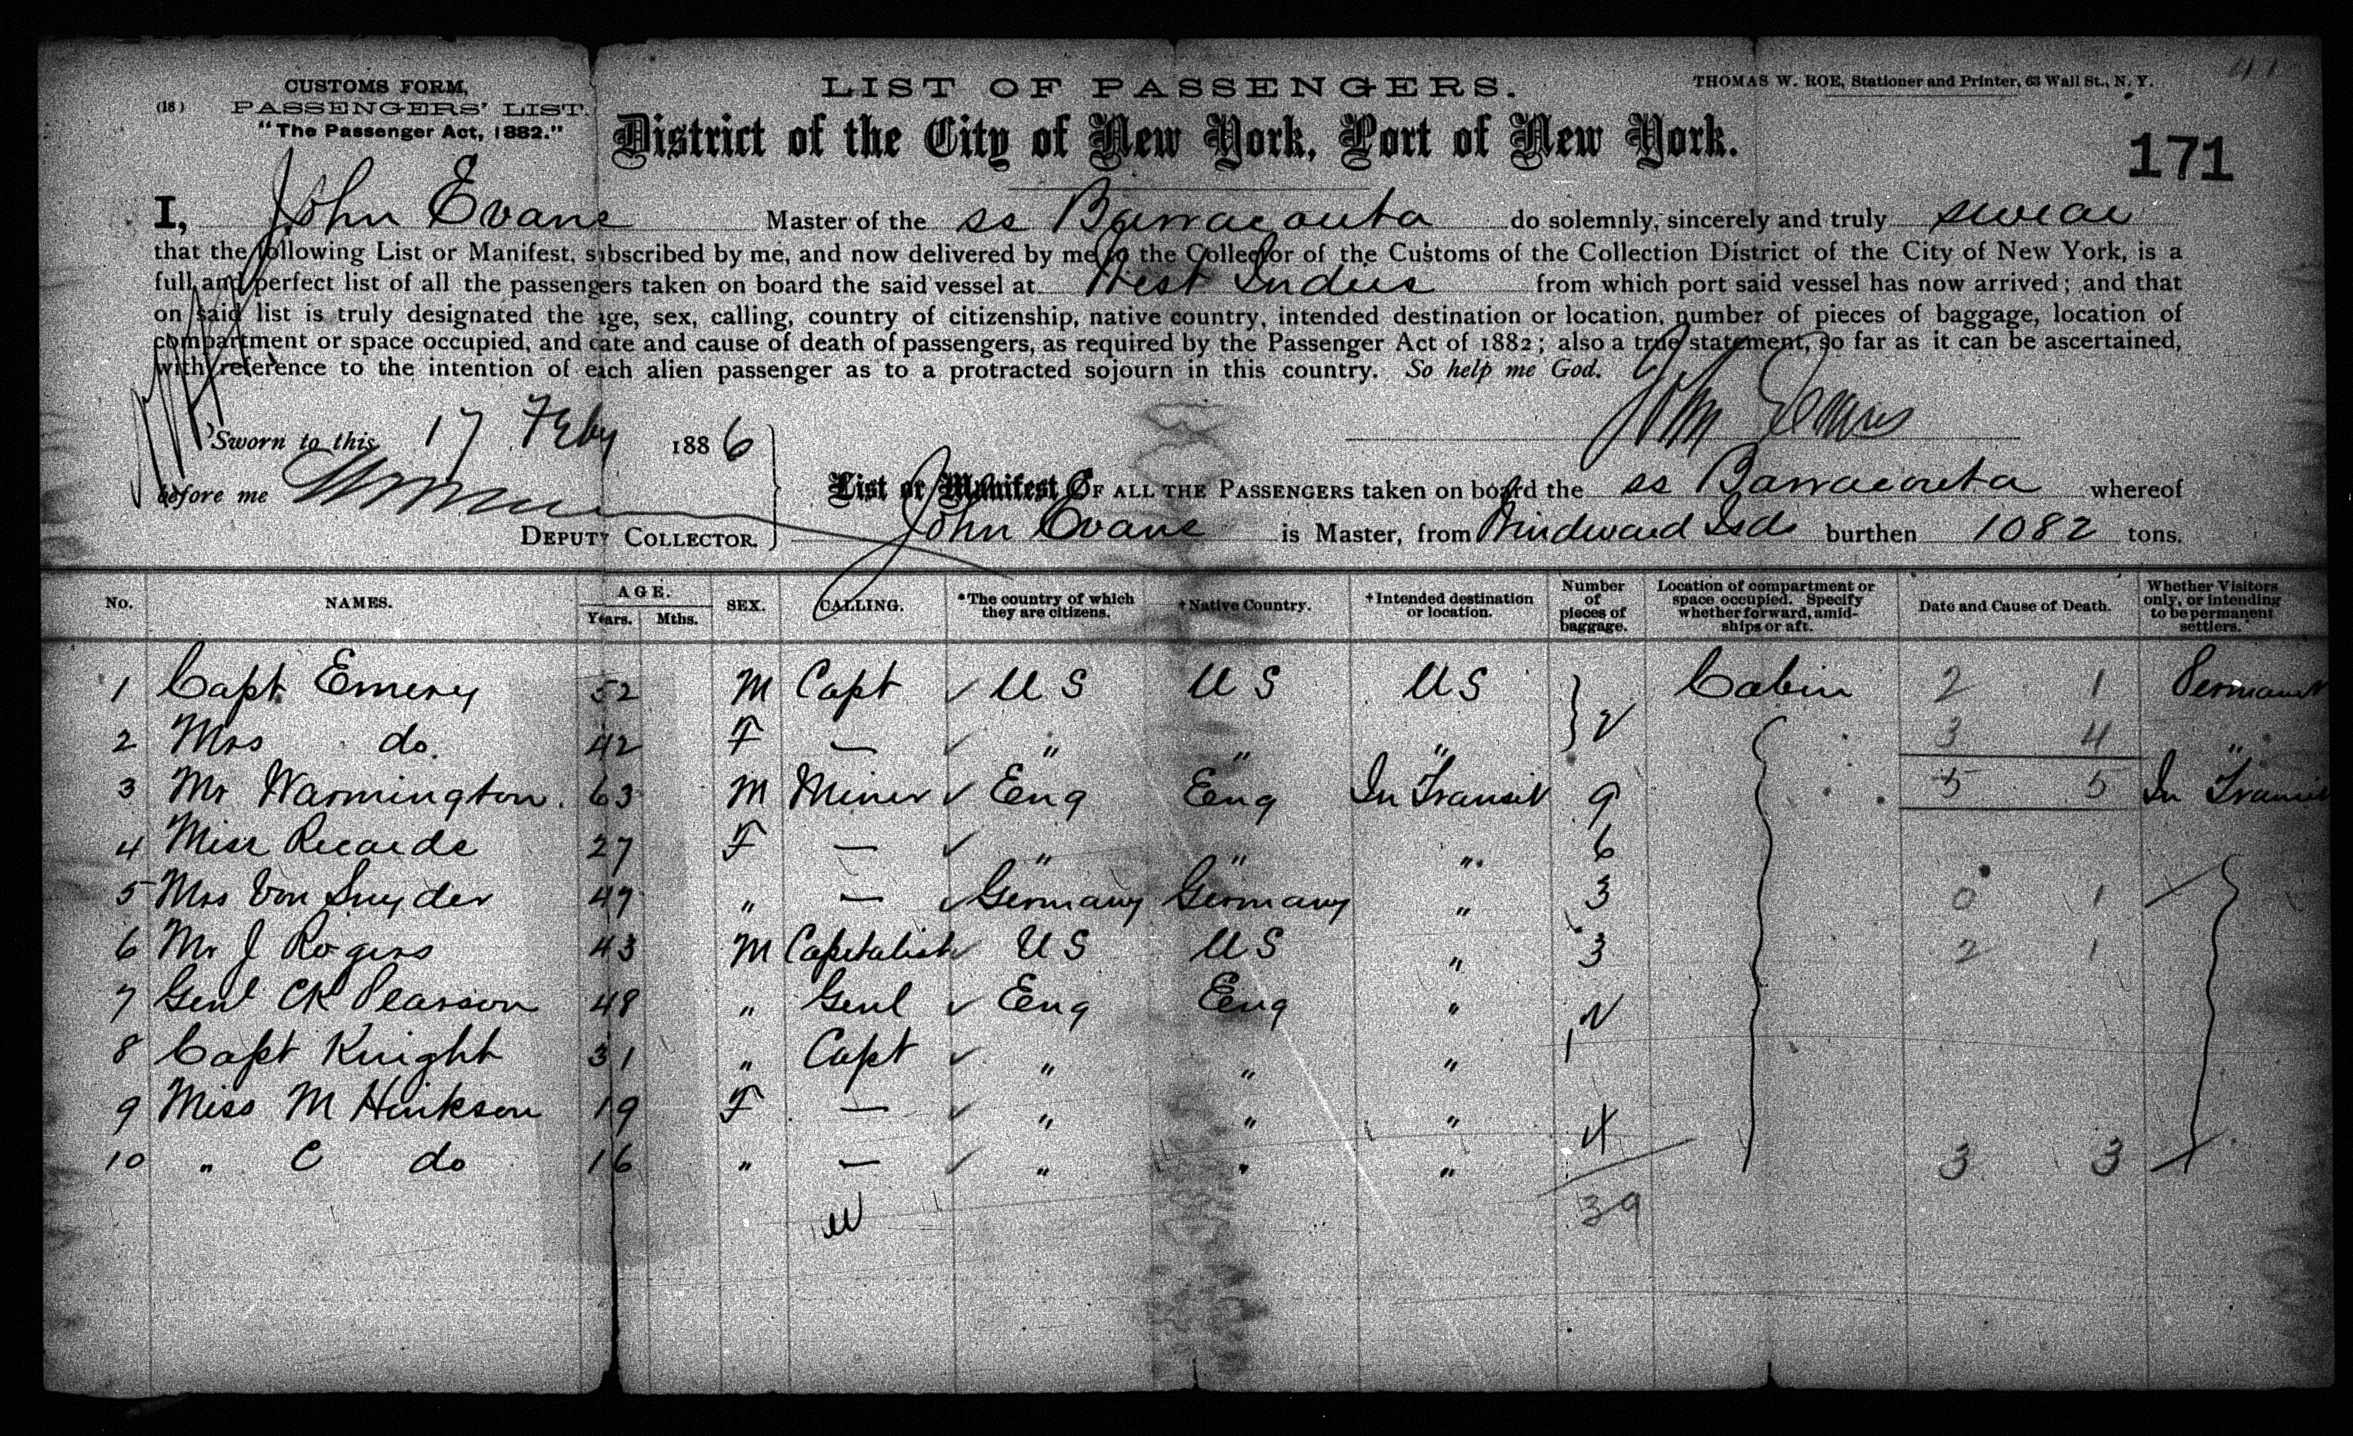 CUSTOMS FORM,
(18) PASSENGERS' LIST.
"The Passenger Act, 1882."
LIST OF PASSENGERS.
THOMAS W. ROE, Stationer and Printer, 63 Wall St., N. Y.
District of the City of New York, Port of New York.
171
I, John Evans Master of the ss Barracouta do solemnly, sincerely and truly swear
that the following List or Manifest, subscribed by me, and now delivered by me to the Collector of the Customs of the Collection District of the City of New York, is a
full and perfect list of all the passengers taken on board the said vessel at West Indies from which port said vessel has now arrived; and that
on said list is truly designated the age, sex, calling, country of citizenship, native country, intended destination or location, number of pieces of baggage, location of
compartment or space occupied, and date and cause of death of passengers, as required by the Passenger Act of 1882; also a true statement, so far as it can be ascertained,
with reference to the intention of each alien passenger as to a protracted sojourn in this country. So help me God.
John Evans
Sworn to this 17 Feby 1886
before me
DEPUTY COLLECTOR.
List or Manifest OF ALL THE PASSENGERS taken on board the ss Barracouta whereof
John Evans is Master, from Windward Isds burthen 1082 tons.
No. NAMES. AGE. Years. Mths. SEX. CALLING. *The country of which they are citizens. †Native Country. †Intended destination or location. Number of pieces of baggage. Location of compartment or space occupied. Specify whether forward, amidships or aft. Date and Cause of Death. Whether Visitors only, or intending to be permanent settlers.
1 Capt Emery 52 M Capt ✓ U S U S U S Cabin 2 1 Permanent
2 Mrs do. 42 F — ✓ " " " 2 3 4 "
3 Mr Warmington. 63 M Miner ✓ Eng Eng In Transit 9 5 5 In Transit
4 Miss Ricards 27 F — ✓ " " " 6
5 Mrs Von Snyder 49 " — ✓ Germany Germany " 3 0 1
6 Mr J Rogers 43 M Capitalist ✓ U S U S " 3 2 1
7 Genl CK Pearson 48 " Genl ✓ Eng Eng "
8 Capt Knight 31 " Capt ✓ " " "
9 Miss M Hinkson 19 F — ✓ " " "
10 " C do 16 " — ✓ " " " 4 3 3
39